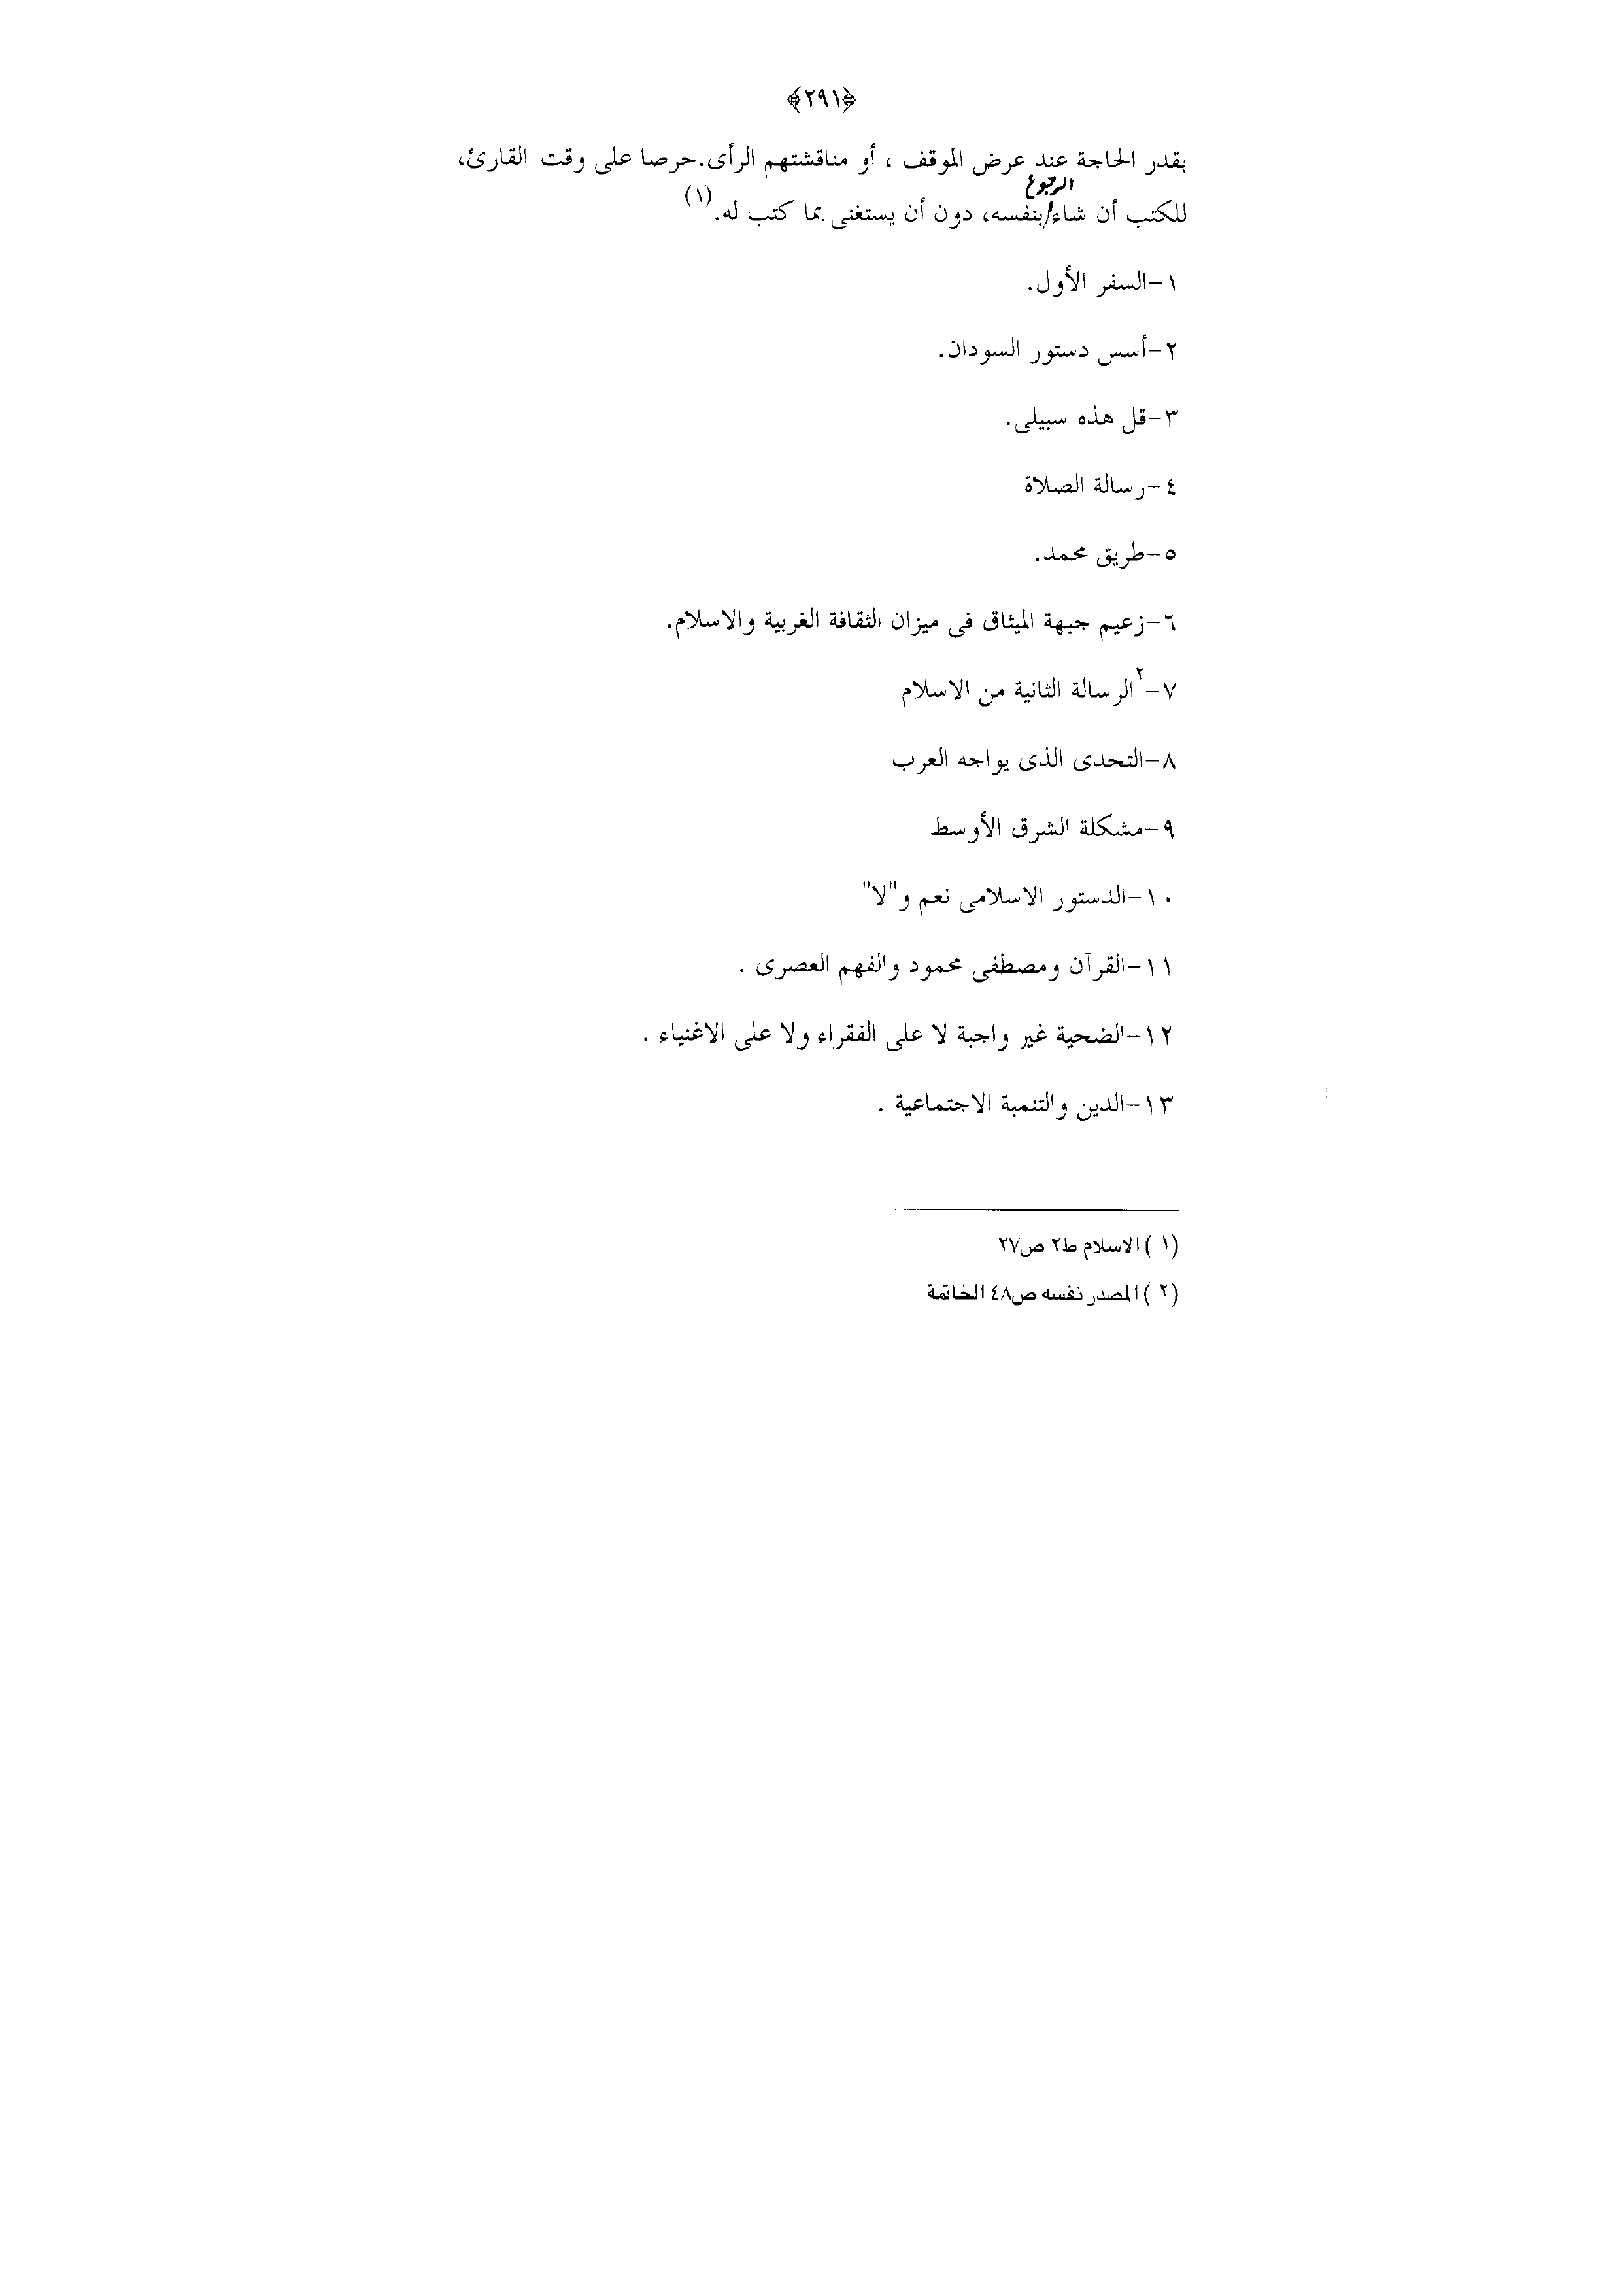 ﴿٢٩١﴾
بقدر الحاجة عند عرض الموقف ، أو مناقشتهم الرأى.حرصا على وقت القارئ،
الرجوع
للكتب أن شاء/بنفسه، دون أن يستغنى بما كتب له.(١)
١-السفر الأول.
٢-أسس دستور السودان.
٣-قل هذه سبيلى.
٤-رسالة الصلاة
٥-طريق محمد.
٦-زعيم جبهة الميثاق فى ميزان الثقافة الغربية والاسلام.
٧-٢الرسالة الثانية من الاسلام
٨-التحدى الذى يواجه العرب
٩-مشكلة الشرق الأوسط
١٠-الدستور الاسلامى نعم و"لا"
١١-القرآن ومصطفى محمود والفهم العصرى .
١٢-الضحية غير واجبة لا على الفقراء ولا على الاغنياء .
١٣-الدين والتنمبة الاجتماعية .
(١ )الاسلام ط٢ ص٢٧
(٢ )المصدر نفسه ص٤٨ الخاتمة